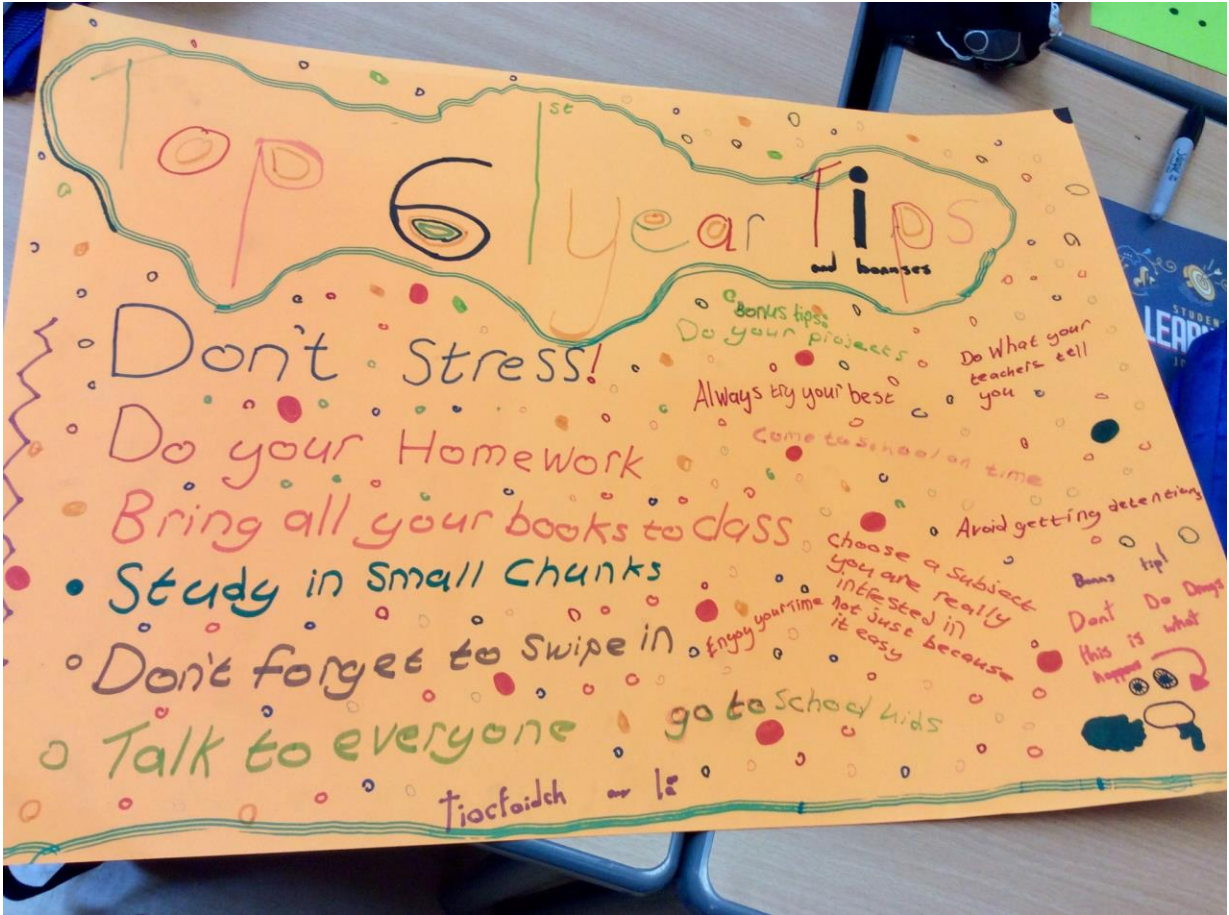 Top 6 1st year Tips
and bonuses
Don't Stress!
Do your Homework
Bring all your books to class
Study in Small Chunks
Don't forget to Swipe in
Talk to everyone
Tiocfaidch ar lá
Bonus tips:
Do your projects
Always try your best
Do What your
teachers tell
you
Come to School on time
Avoid getting detentions
Choose a Subject
you are really
intrested in
not just because
it easy
Enjoy your Time
go to School kids
Bonus tip!
Dont Do Drugs
this is what
happens
SHARPIE
STUDEN
LEARN